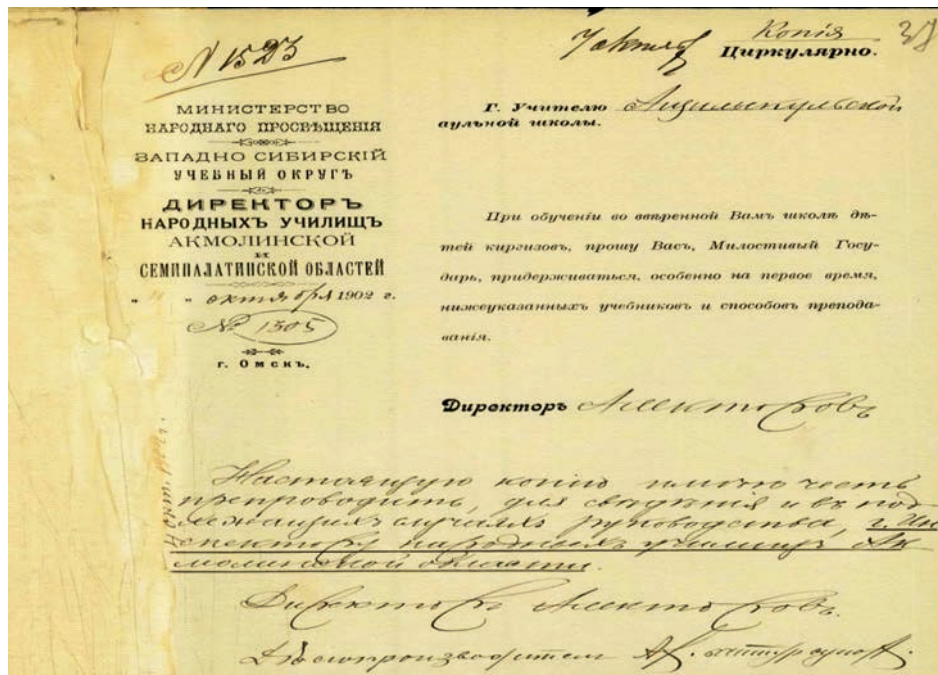 N 1523
7 октяб
Копія
Циркулярно.
38
МИНИСТЕРСТВО
НАРОДНАГО ПРОСВѢЩЕНІЯ
ЗАПАДНО СИБИРСКІЙ
УЧЕБНЫЙ ОКРУГЪ
ДИРЕКТОРЪ
НАРОДНЫХЪ УЧИЛИЩЪ
АКМОЛИНСКОЙ
И
СЕМИПАЛАТИНСКОЙ ОБЛАСТЕЙ
октября 1902 г.
№ 1505
г. ОМСКЪ.
Г. Учителю
аульной школы.
При обученіи во ввѣренной Вамъ школѣ дѣ-
тей киргизовъ, прошу Васъ, Милостивый Госу-
дарь, придерживаться, особенно на первое время,
нижеуказанныхъ учебниковъ и способовъ препода-
ванія.
Директоръ Алекторовъ
Настоящую копію имѣю честь
препроводить, для свѣдѣнія и въ под
лежащихъ случаяхъ руководства, г. Ин
спектору народныхъ училищъ Ак
молинской области.
Директоръ Алекторовъ.
Дѣлопроизводитель А.